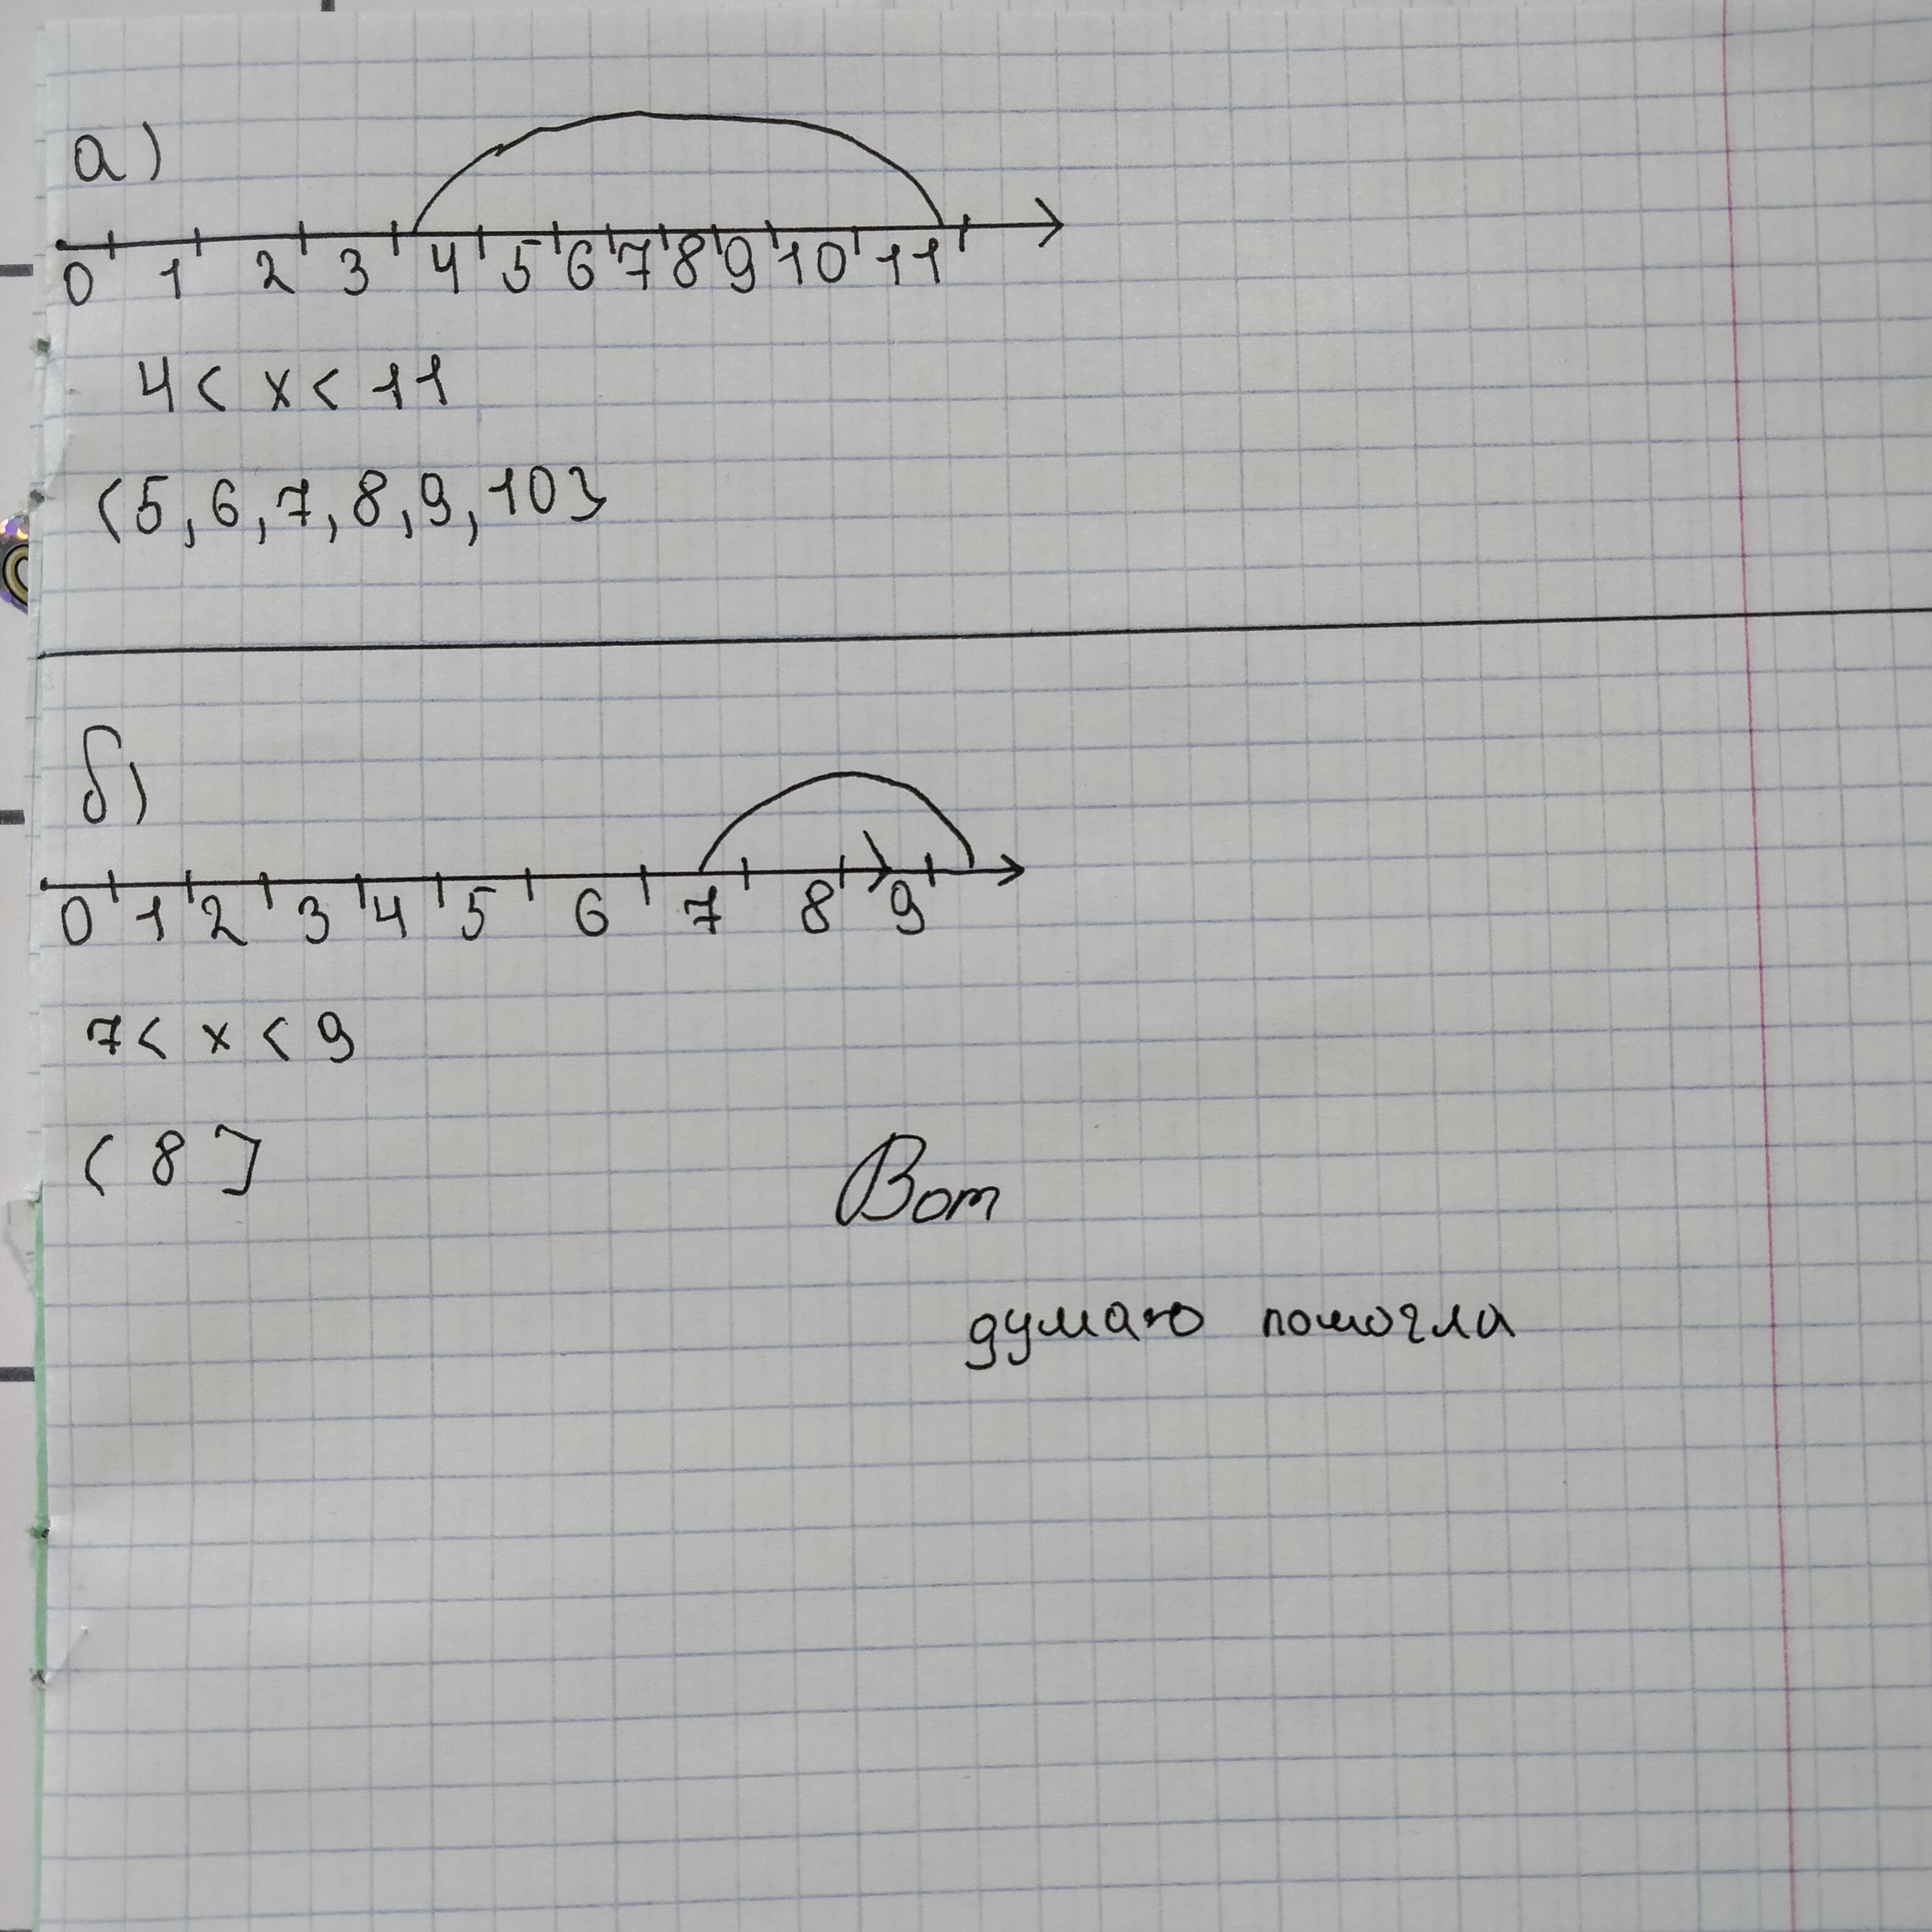 а)
0 1 2 3 4 5 6 7 8 9 10 11
4 < x < 11
(5, 6, 7, 8, 9, 10}
б)
0 1 2 3 4 5 6 7 8 9
7 < x < 9
( 8 ]
Вот
думаю помогла